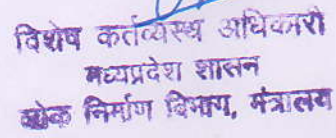 विशेष कर्तव्यस्थ अधिकारी
मध्यप्रदेश शासन
लोक निर्माण विभाग, मंत्रालय